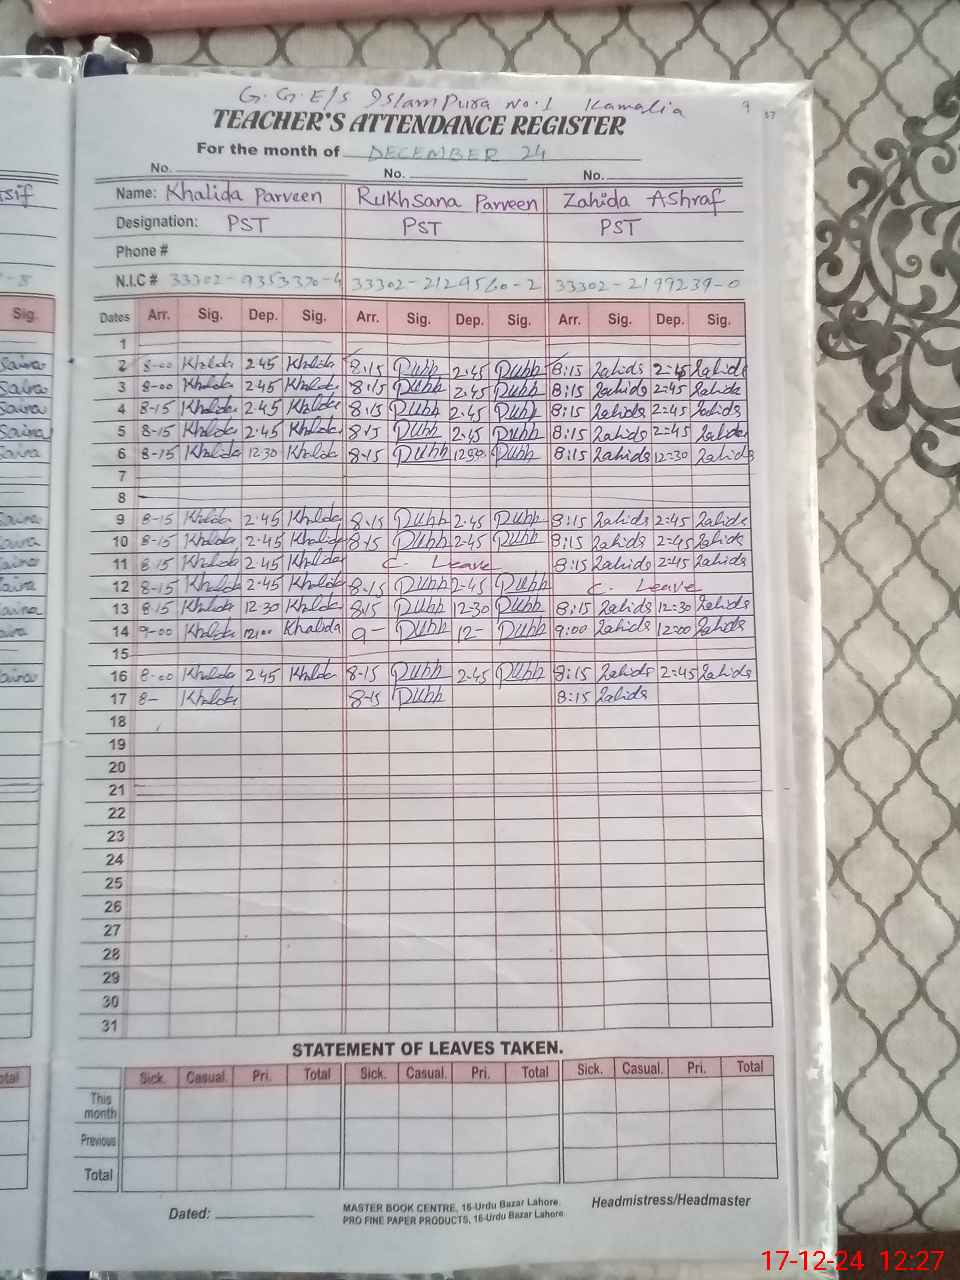 G.G.E/S Islam Pura No.1 Kamalia 9 57
TEACHER'S ATTENDANCE REGISTER
For the month of DECEMBER 24
No. No. No.
Name: Khalida Parveen Rukhsana Parveen Zahida Ashraf
Designation: PST PST PST
Phone #
N.I.C # 33302-9353370-4 33302-2129560-2 33302-2199239-0
Dates Arr. Sig. Dep. Sig. Arr. Sig. Dep. Sig. Arr. Sig. Dep. Sig.
1
2 8-00 Khalida 2.45 Khalida 8:15 Rukh 2.45 Rukh 8:15 Zahida 2=45 Zahida
3 8-00 Khalida 2.45 Khalida 8.15 Rukh 2.45 Rukh 8:15 Zahida 2=45 Zahida
4 8-15 Khalida 2.45 Khalida 8.15 Rukh 2.45 Rukh 8:15 Zahida 2=45 Zahida
5 8-15 Khalida 2.45 Khalida 8.15 Rukh 2.45 Rukh 8:15 Zahida 2=45 Zahida
6 8-15 Khalida 12.30 Khalida 8-15 Rukh 1230 Rukh 8:15 Zahida 12=30 Zahida
7
8
9 8-15 Khalida 2.45 Khalida 8.15 Rukh 2.45 Rukh 8:15 Zahida 2=45 Zahida
10 8-15 Khalida 2.45 Khalida 8-15 Rukh 2-45 Rukh 8:15 Zahida 2=45 Zahida
11 8.15 Khalida 2.45 Khalida C. Leave 8:15 Zahida 2=45 Zahida
12 8-15 Khalida 2.45 Khalida 8-15 Rukh 2-45 Rukh C. Leave
13 8.15 Khalida 12-30 Khalida 8.15 Rukh 12-30 Rukh 8:15 Zahida 12=30 Zahida
14 9-00 Khalida 12:00 Khalida 9- Rukh 12- Rukh 9:00 Zahida 12=00 Zahida
15
16 8-00 Khalida 2.45 Khalida 8-15 Rukh 2.45 Rukh 8:15 Zahida 2=45 Zahida
17 8- Khalida 8-15 Rukh 8:15 Zahida
18
19
20
21
22
23
24
25
26
27
28
29
30
31
STATEMENT OF LEAVES TAKEN.
Sick. Casual. Pri. Total Sick. Casual. Pri. Total Sick. Casual. Pri. Total
This month
Previous
Total
Dated: MASTER BOOK CENTRE, 16-Urdu Bazar Lahore. Headmistress/Headmaster
PRO FINE PAPER PRODUCTS, 16-Urdu Bazar Lahore.
17-12-24 12:27